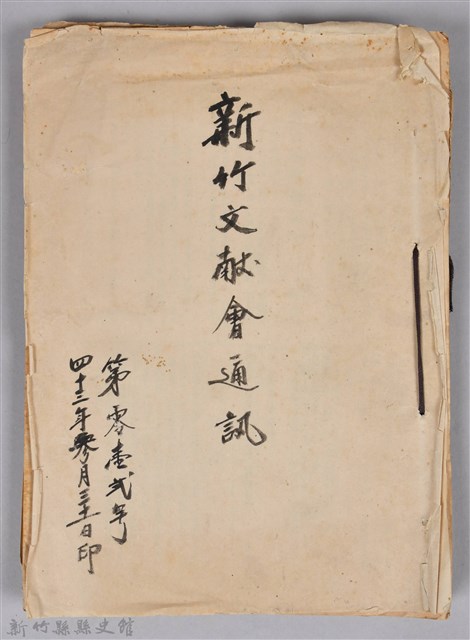 新竹文献會通訊
第零壹弍号
四十三年參月三十一日印
新竹縣縣史館